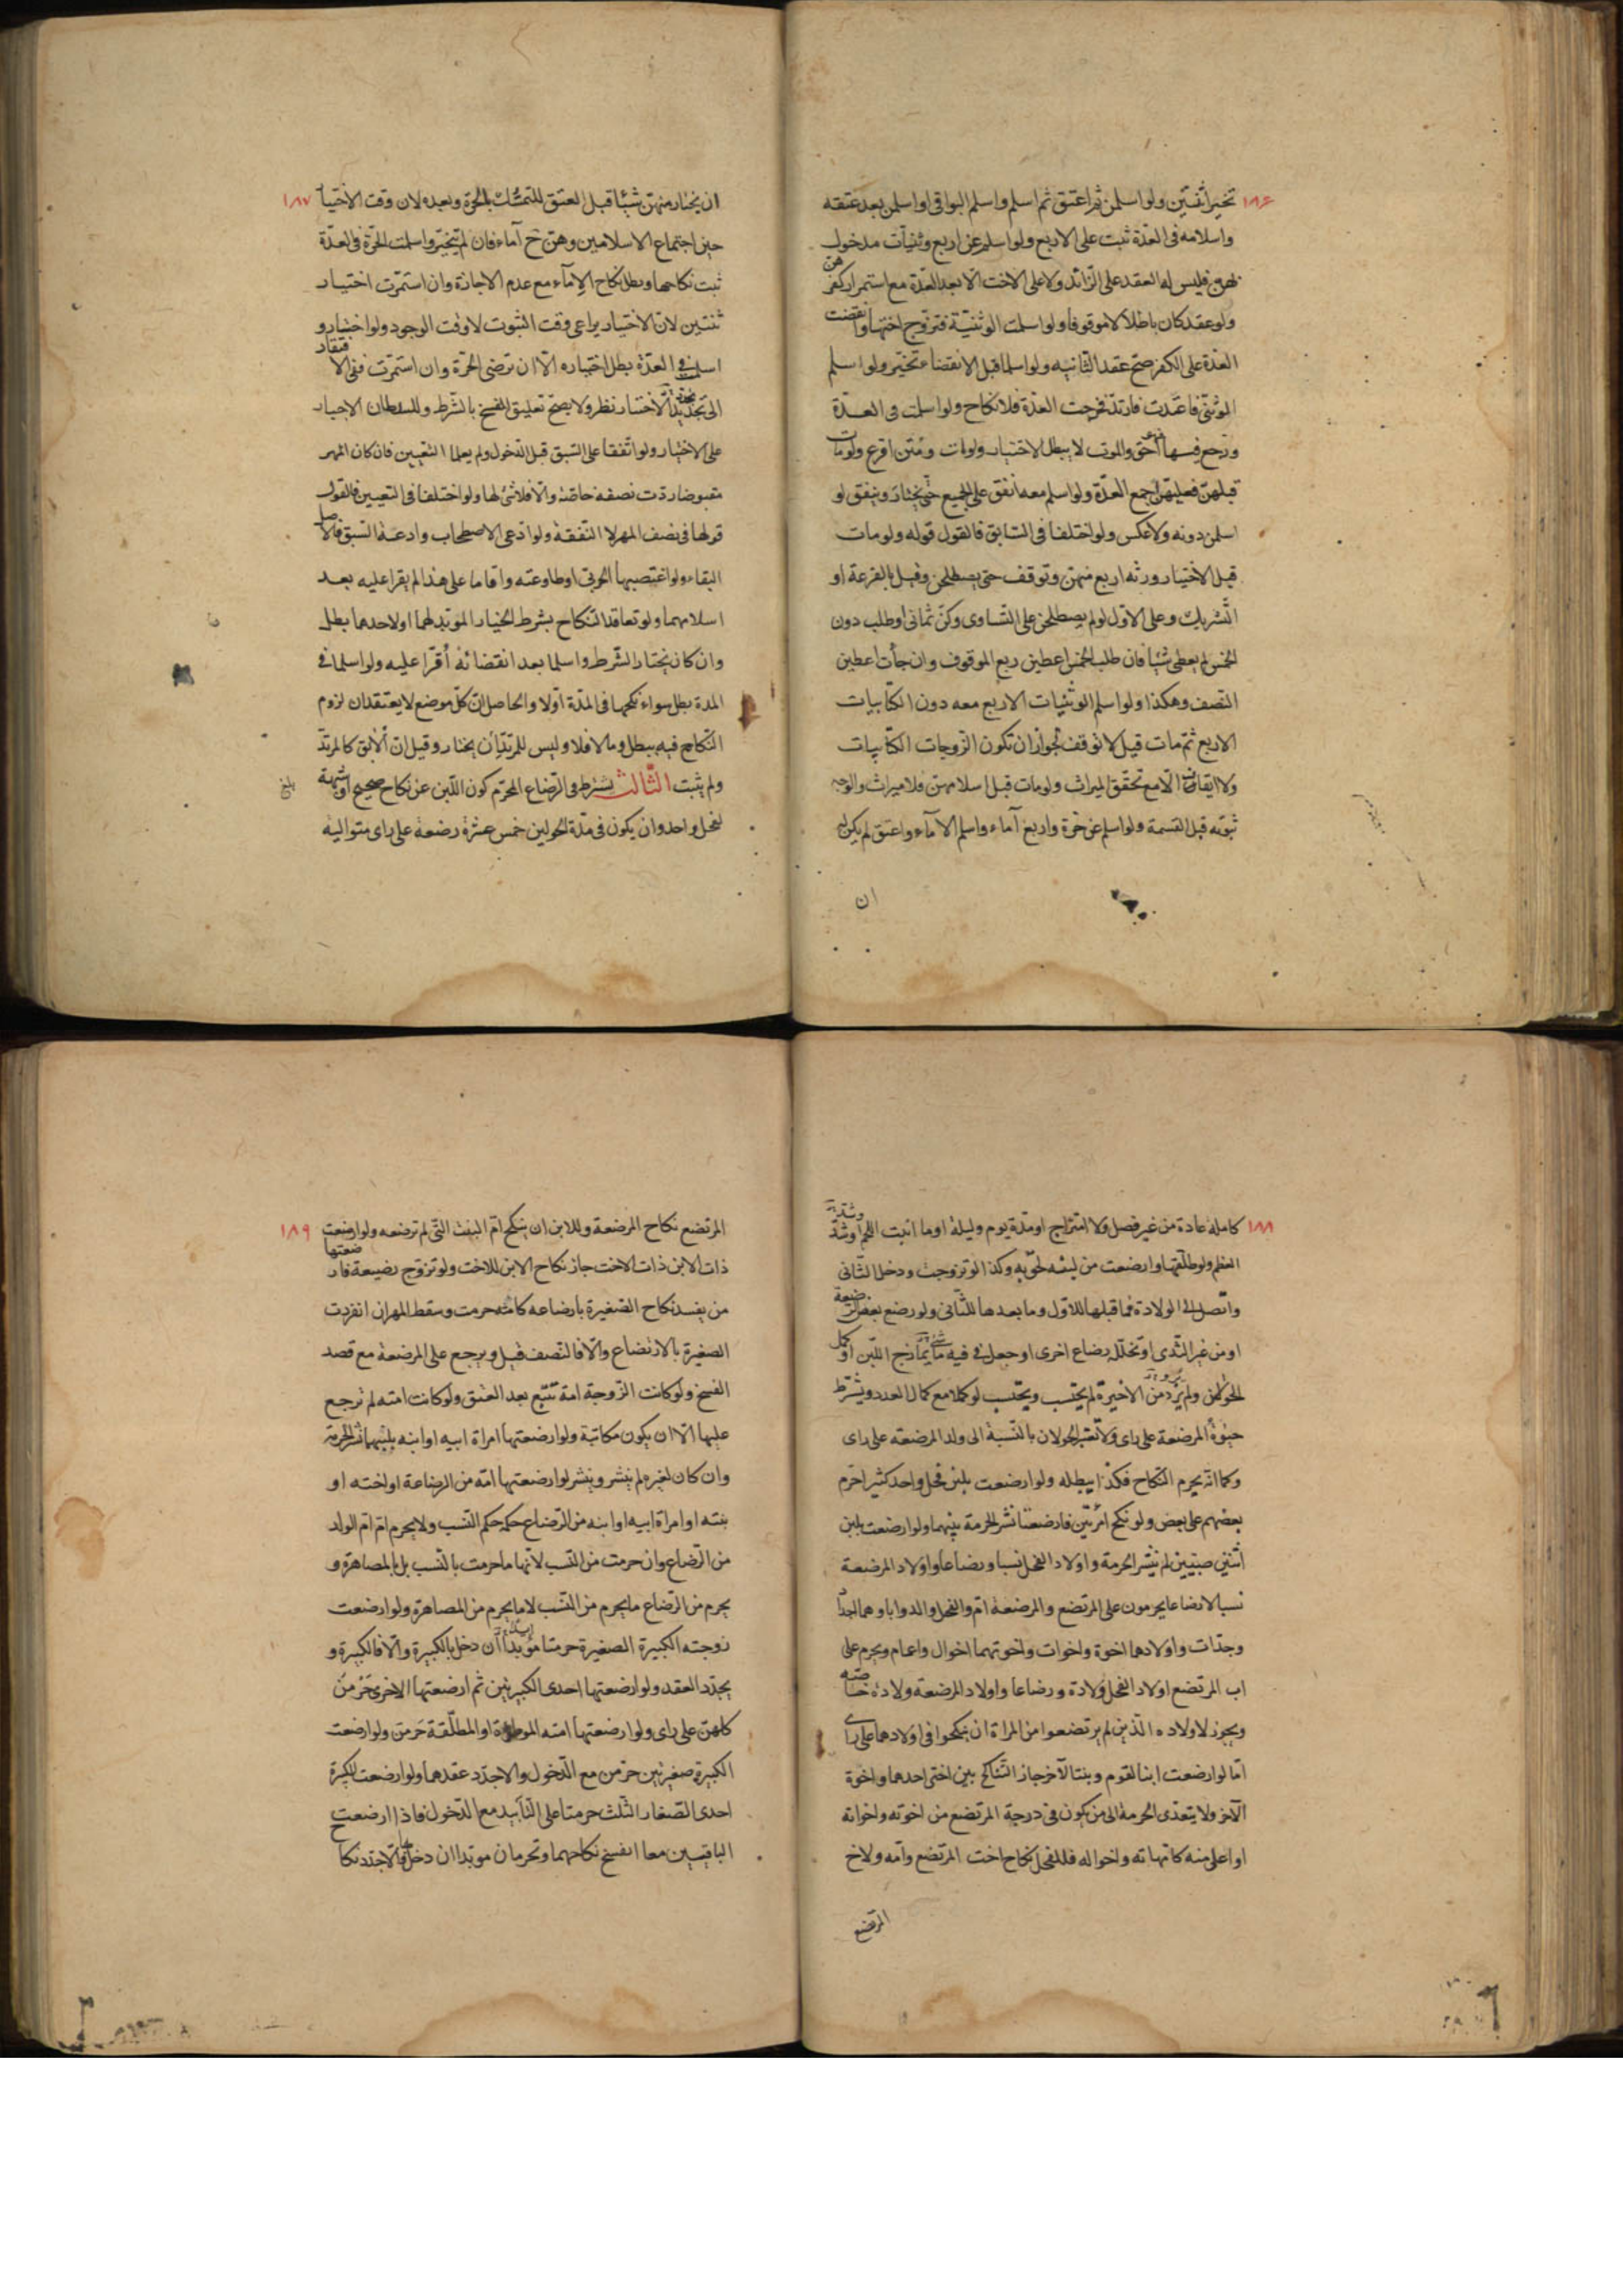 ١٨۶
تخير اثنتين ولو اسلمن ثم اعتق ثم اسلم واسلم البواقى او اسلمن بعد عتقه
واسلامه فى العدة ثبت على الاربع ولو اسلم عن اربع وثنيات مدخول
بهن فليس له العقد على الزائد ولا على الاخت الا بعد العدة مع استمرار كفرهن
ولو عقد كان باطلا لا موقوفا ولو اسلمت الوثنية فتزوج اختها وانقضت
العدة على الكفر صح عقد الثانيه ولو اسلما قبل الانقضاء تخير ولو اسلم
الوثنى فاعتدت فارتد فخرجت العدة فلا نكاح ولو اسلمت فى العدة
ورجع فهو احق والموت لا يبطل الاختيار ولو مات ومتن اقرع ولو مات
قبلهن فعليهن اجمع العدة ولو اسلم معه انفق على الجميع حتى يختار وينفق لو
اسلمن دونه ولا عكس ولو اختلفا فى السابق فالقول قوله ولو مات
قبل الاختيار ورثه اربع منهن وتوقف حتى يصطلحن وقيل بالقرعة او
التشريك وعلى الاول لو لم يصطلحن على التساوى وكن ثمانى او طلب دون
الخمس لم يعطى شيئا فان طلب الخمس اعطين ربع الموقوف وان جأت اعطين
النصف وهكذا ولو اسلم الوثنيات الاربع معه دون الكتابيات
الاربع ثم مات قيل لا توقف لجواز ان تكون الزوجات الكتابيات
ولا ايقاف الا مع تحقق الميراث ولو مات قبل اسلامهن فلا ميراث والوجه
ثبوته قبل القسمة ولو اسلم عن حرة واربع آماء واسلم الاماء واعتق لم يكن له
ان
١٨٧
ان يختار منهن شيئا قبل العتق للتمسك بالحرة وبعده لان وقت الاختيا
حين اجتماع الاسلامين وهن ح آماء فان لم يتخير واسلمت الحرة فى العدة
ثبت نكاحها وبطل نكاح الاماء مع عدم الاجازة وان استمرت اختيار
ثنتين لان الاختيار يراعى وقت الثبوت لا وقت الوجود ولو اختار و
اسلمت فى العدة بطل اختياره الا ان ترضى الحرة وان استمرت ففى الافتقار
الى تجديد الاختيار نظر ولا يصح تعليق الفسخ بالشرط وللسلطان الاجبار
على الاختيار ولو اتفقا على السبق قبل الدخول ولم يعلما التعيين فان كان المهر
مقبوضا ردت نصفه خاصة والا فلا شئ لها ولو اختلفا فى التعيين فالقول
قولها فى نصف المهر لا النفقة ولو ادعى الاصطحاب وادعت السبق فالاصل
البقاء ولو اغتصبها الحربى او طاوعته واقاما على هذا لم يقرا عليه بعد
اسلامهما ولو تعاقدا النكاح بشرط الخيار المؤبد لهما او لاحدهما بطل
وان كان يختار الشرط واسلما بعد انقضائه أقرا عليه ولو اسلما فى
المدة بطل سواء نكحها فى المدة اولا والحاصل ان كل موضع لا يعتقدان لزوم
النكاح فيه يبطل وما لا فلا وليس للمرتد ان يختار وقيل ان الآبق كالمرتد
ولم يثبت الثالث يشترط فى الرضاع المحرم كون اللبن عن نكاح صحيح او شبهة
بلغ
لفحل واحد وان يكون فى مدة الحولين خمس عشرة رضعة على راى متواليه
١٨٨
كاملة عادة من غير فصل ولا امتزاج او مدة يوم وليلة او ما انبت اللحم او شد
العظم ولو طلقها وارضعت من لبنه لحق به وكذا لو تزوجت ودخل الثانى
واتصل الى الولادة فما قبلها للاول وما بعدها للثانى ولو رضع بعض الرضعة
او من غير الثدى او تخلل رضاع اخرى او جعل فى فيه ما يمازج اللبن او كمل
الحولان ولم يرو من الاخيرة لم يحتسب ويحتسب لو كملا مع كمال العدد ويشترط
حيوة المرضعة على راى ولا تعتبر الحولان بالنسبة الى ولد المرضعه على راى
وكما انه يحرم النكاح فكذا يبطله ولو ارضعت بلبن فحل واحد كثيرا حرم
بعضهم على بعض ولو نكح امرأتين فارضعتا نشر الحرمة بينهما ولو ارضعت بلبن
اثنين صبيين لم ينشر الحرمة واولاد الفحل نسبا ورضاعا واولاد المرضعة
نسبا لا رضاعا يحرمون على المرتضع والمرضعة ام والفحل والد واباوهما اجدا
وجدات واولادهما اخوة واخوات واخوتهما اخوال واعمام ويحرم على
اب المرتضع اولاد الفحل ولادة ورضاعا واولاد المرضعة ولادة خاصة
ويجوز لاولاده الذين لم يرتضعوا من المراة ان ينكحوا فى اولادهما على راى
اما لو ارضعت ابنا لقوم وبنتا لآخر جاز التناكح بين اختى احدهما واخوة
الآخر ولا يتعدى الحرمة الى من يكون فى درجة المرتضع من اخوته واخواته
او اعلى منه كامهاته واخواله فللفحل نكاح اخت المرتضع وامه ولاخ
المرتضع
١٨٩
المرتضع نكاح المرضعة وللابن ان ينكح ام البنت التى لم ترضعه ولو ارضعت
ذات الابن ذات الاخت جاز نكاح الابن للاخت ولو تزوج رضيعة فارضعتها
من يفسد نكاح الصغيرة بارضاعه كامه حرمت وسقط المهر ان انفردت
الصغيرة بالارتضاع والا فالنصف قيل ويرجع على المرضعة مع قصد
الفسخ ولو كانت الزوجة امة تتبع بعد العتق ولو كانت امته لم ترجع
عليها الا ان يكون مكاتبة ولو ارضعتها امراة ابيه او ابنه بلبنهما نشر الحرمة
وان كان لغيره لم ينشر وينشر لو ارضعتها امه من الرضاعة او اخته او
بنته او امراة ابيه او ابنه من الرضاع حكمه حكم النسب ولا يحرم ام ام الولد
من الرضاع وان حرمت من النسب لانها ما حرمت بالنسب بل بالمصاهرة و
يحرم من الرضاع ما يحرم من النسب لا ما يحرم من المصاهرة ولو ارضعت
زوجته الكبيرة الصغيرة حرمتا مؤبدا ان دخل بالكبيرة والا فالكبيرة و
يجدد العقد ولو ارضعتها احدى الكبيرتين ثم ارضعتها الاخرى حرمن
كلهن على راى ولو ارضعتها امته الموطوة او المطلقة حرمتن ولو ارضعت
الكبيرة صغيرتين حرمن مع الدخول والا جدد عقدهما ولو ارضعت الكبيرة
احدى الصغار الثلث حرمتا على التأبيد مع الدخول فاذا ارضعت
الباقيتين معا انفسخ نكاحهما وتحرمان مؤبدا ان دخل والا جدد نكا